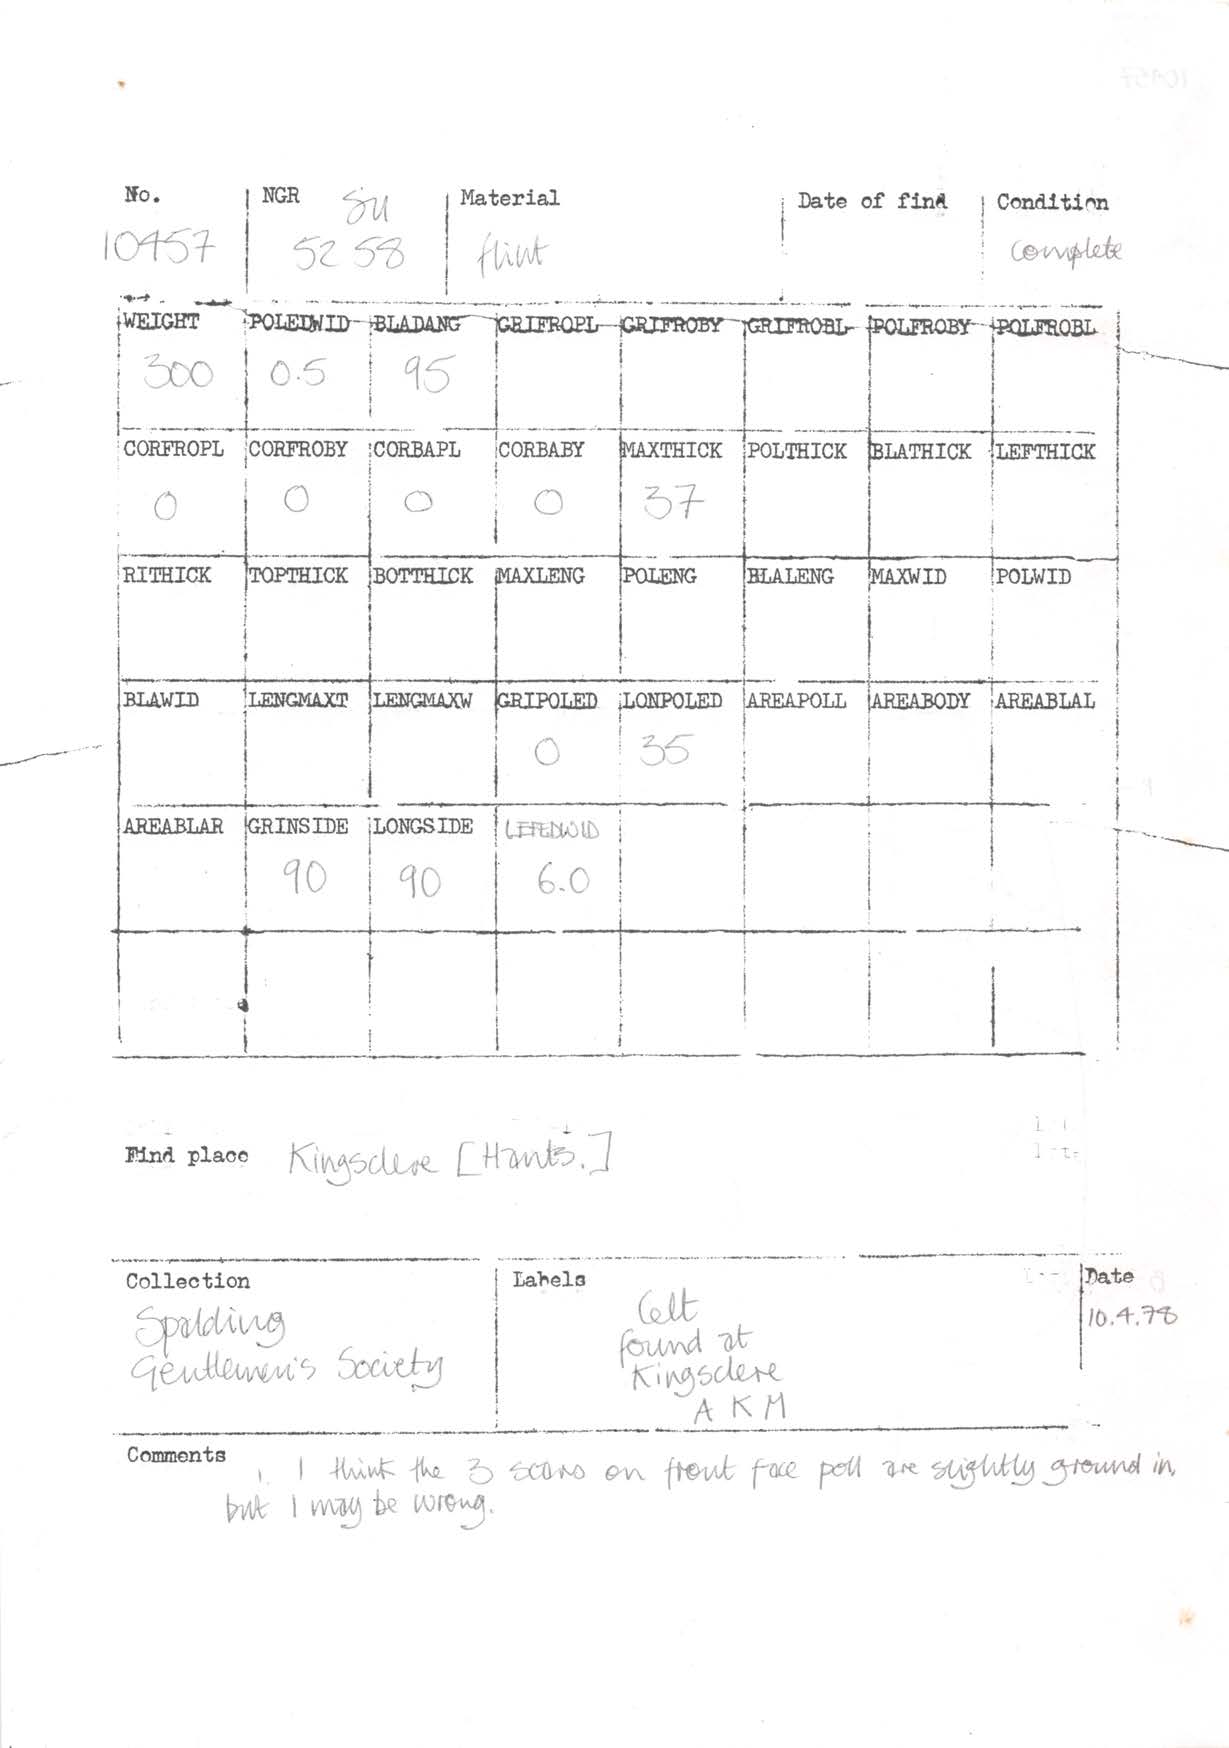 No. NGR SU Material Date of find Condition
10457 52 58 flint complete
WEIGHT POLEDWID BLADANG GRIFROPL GRIFROBY GRIFROBL POLFROBY POLFROBL
300 0.5 95
CORFROPL CORFROBY CORBAPL CORBABY MAXTHICK POLTHICK BLATHICK LEFTHICK
0 0 0 0 37
RITHICK TOPTHICK BOTTHICK MAXLENG POLENG BLALENG MAXWID POLWID
BLAWID LENGMAXT LENGMAXW GRIPOLED LONPOLED AREAPOLL AREABODY AREABLAL
0 35
AREABLAR GRINSIDE LONGSIDE LEFEDWID
90 90 6.0
Find place Kingsclere [Hants.]
Collection Labels Date
Spalding
Gentlemen's Society
Celt
found at
Kingsclere
A K M
10.4.78
Comments
I think the 3 scars on front face poll are slightly ground in,
but I may be wrong.